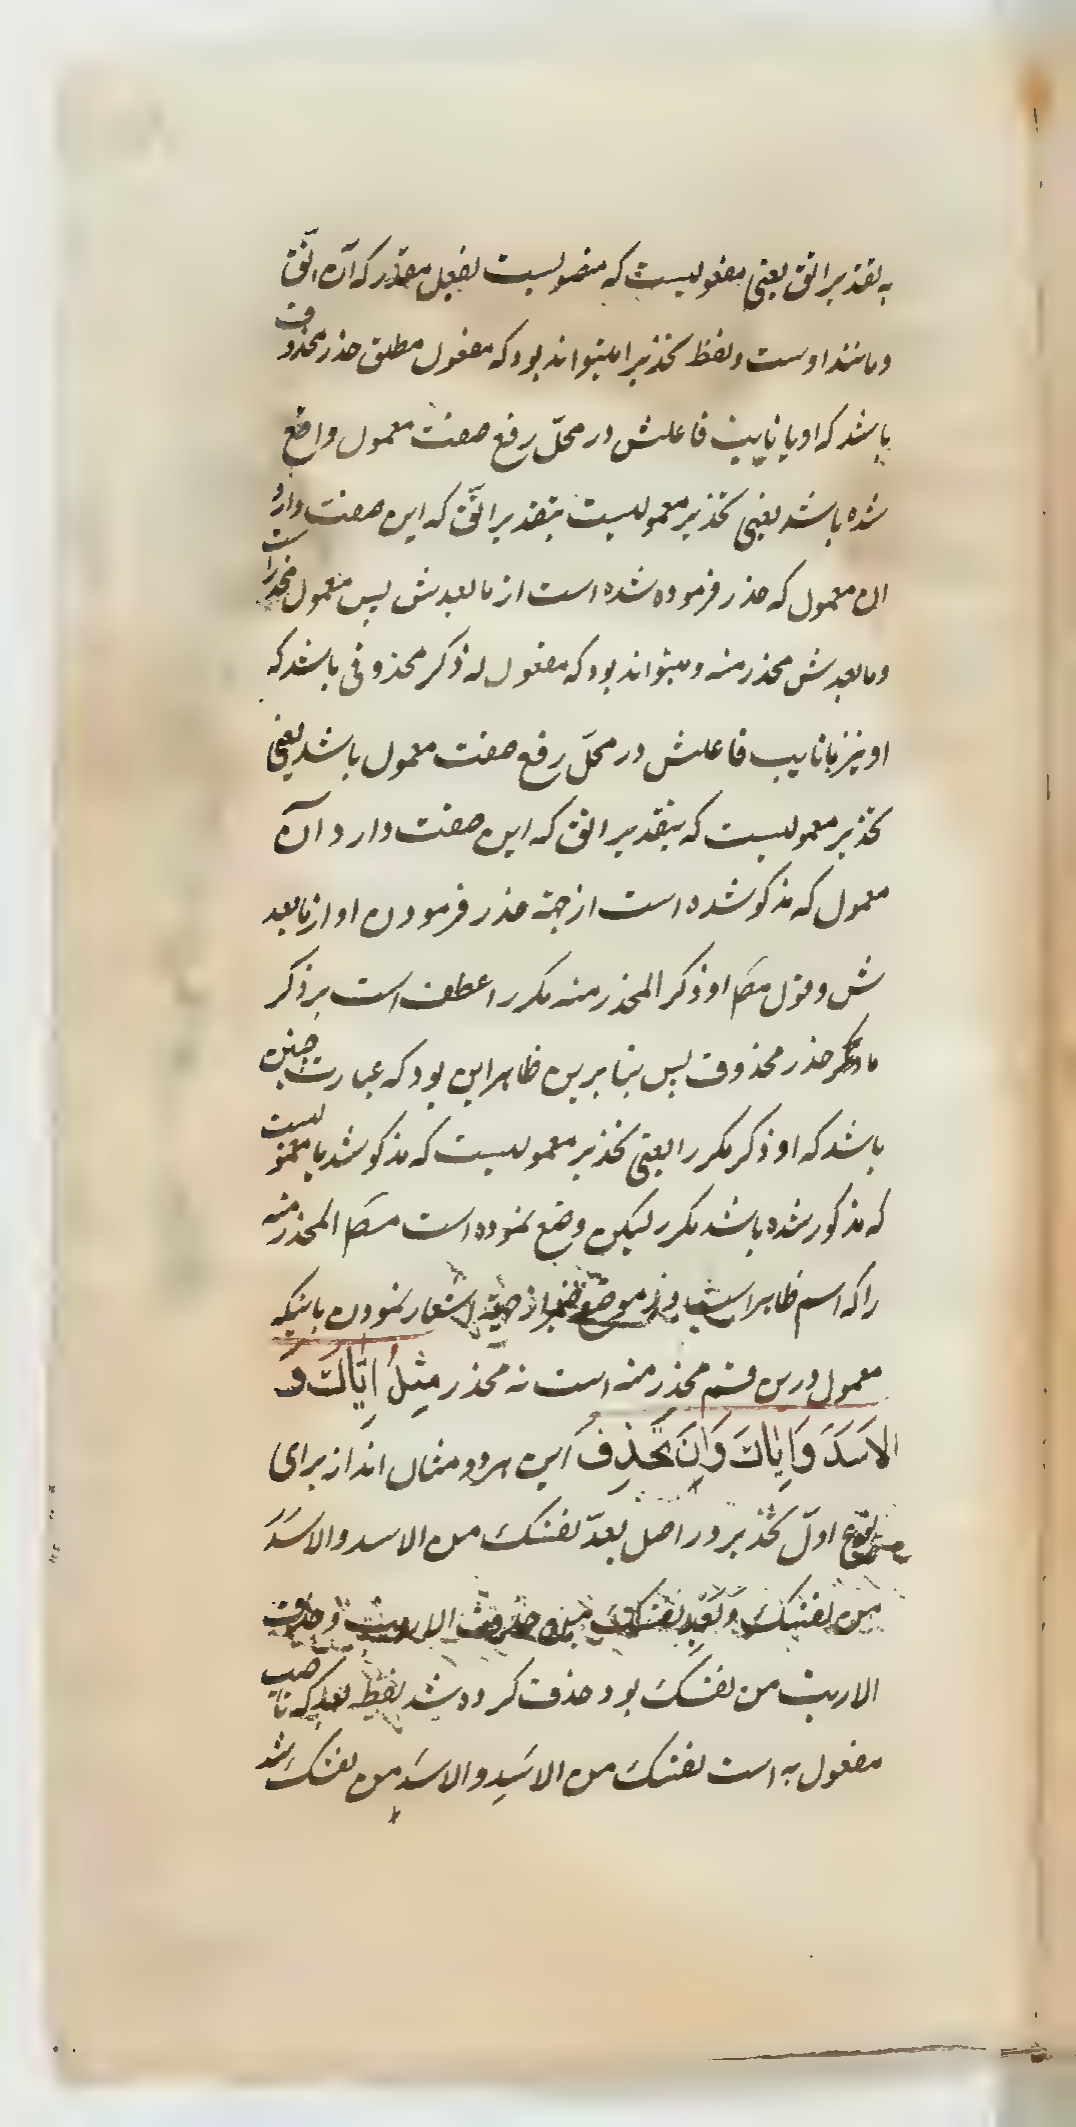 به تقدیر اتق یعنی مفعولیست که منصوبست بفعل مقدّر که آن اتّق
و مانند اوست و لفظ تحذیرا میتواند بود که مفعول مطلق حذر محذوف
باشد که او با نایب فاعلش در محلّ رفع صفت معمول واقع
شده باشد یعنی تحذیر معمولیست بتقدیر اتّق که این صفت دارد
ان معمول که حذر فرموده شده است از مابعدش پس معمول محذر است
و مابعدش محذر منه و میتواند بود که مفعول له ذکر محذوفی باشد که
او نیز با نایب فاعلش در محلّ رفع صفت معمول باشد یعنی
تحذیر معمولیست که بتقدیر اتق که این صفت دارد آن
معمول که مذکو شده است از جهة حذر فرمودن او از مابعد
ش و قول مص او ذکر المحذر منه مکررا عطف است بر ذکر
یا دیگر حذر محذوف پس بنا برین ظاهر این بود که عبارت چنین
باشد که او ذکر مکررا یعنی تحذیر معمولیست که مذکو شد یا معمولیست
که مذکور شده باشد مکرر لیکن وضع نموده است مص المحذر منه
را که اسم ظاهر است در موضع ضمیر از جهة اشعار نمودن باینکه
معمول درین قسم محذر منه است نه محذر مِثلُ اِیّاکَ وَ
الاَسَدَ وَاِیاکَ وَاَن تَحذِفَ این هر دو مثال اند از برای
نوع اولّ تحذیر در اصل بعدّ نفسَکَ من الاسد والاسَدَ
من نفسِکَ وَ بَعِّد نفسَکَ من حذف الارنب و حذف
الارنب من نفسک بود حذف کرده شد لفظ بعد که ناصب
مفعول به است نفسَکَ من الاسَدِ والاسَدَ من نفسک شد